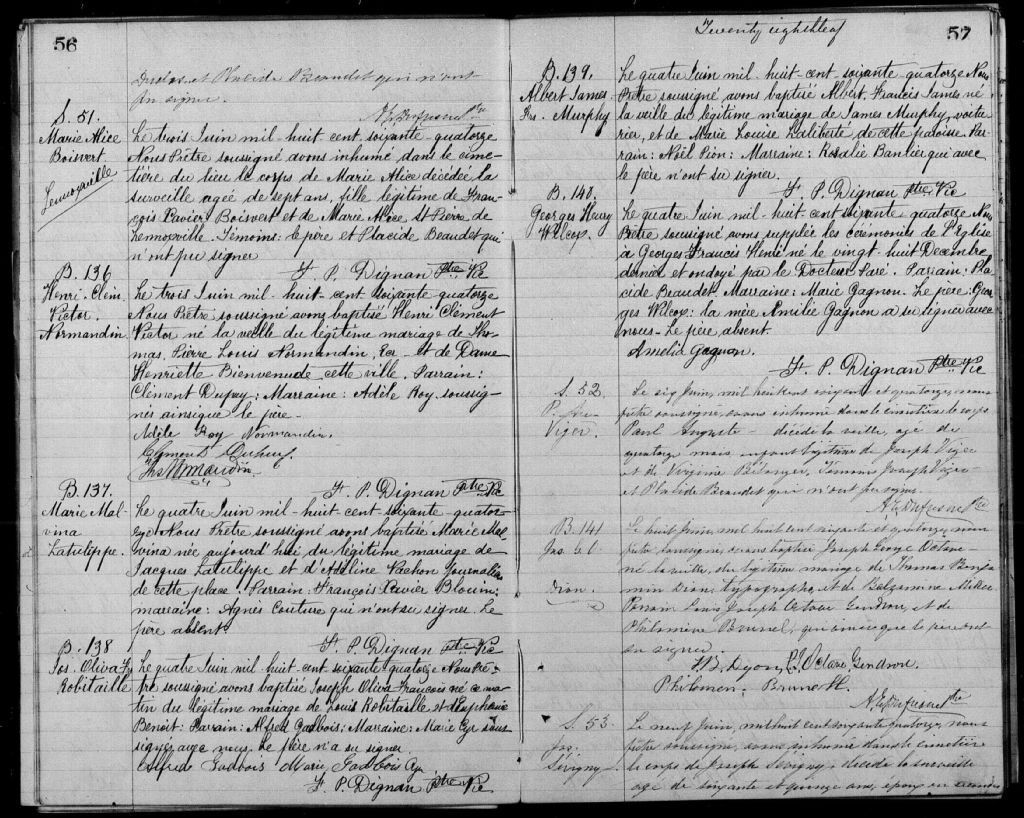 56
Placide Beaudet qui n'ont
pu signer.
S. 51.
Marie Alice
Boisvert
Lennoxville
Le trois Juin mil-huit cent soixante quatorze
Nous Prêtre soussigné avons inhumé dans le cime-
tière du lieu le corps de Marie Alice décédée la
surveille agée de sept ans, fille légitime de Fran-
çois Xavier Boisvert et de Marie Alice St Pierre de
Lennoxville. Témoins: le père et Placide Beaudet qui
n'ont pu signer
F. P. Dignan Ptre Vic
B. 136
Henri. Clém.
Victor.
Normandin
Le trois Juin mil-huit cent soixante quatorze
Nous Prêtre soussigné avons baptisé Henri Clément
Victor né la veille du légitime mariage de Tho-
mas, Pierre Louis Normandin, Ecr et de Dame
Henriette Bienvenu de cette ville. Parrain:
Clément Dupuy: Marraine: Adèle Roy soussig-
nés ainsi que le père-
Adèle Roy Normandin.
F. P. Dignan Ptre Vic
B. 137.
Marie Mal-
vina
Latulippe.
Le quatre Juin mil-huit-cent-soixante-quator-
ze Nous Prêtre soussigné avons baptisé Marie Mal-
vina née aujourd'hui du légitime mariage de
Jacques Latulippe et d'Adéline Vachon Journalier
de cette place. Parrain: François Xavier Blouin:
marraine: Agnès Couture qui n'ont su signer. Le
père absent.
F. P. Dignan Ptre Vic
B. 138
Jos. Oliva Fr
Robitaille
Le quatre Juin mil-huit-cent soixante quatorze Nous Prê-
tre soussigné avons baptisé Joseph Oliva François né ce ma-
tin du légitime mariage de Louis Robitaille et Euphémie
Benoit. Parrain: Alfred Gadbois: Marraine: Marie Cyr sous-
signés avec nous. Le père n'a su signer.
Alfred Gadbois Marie Gadbois Cyr
F. P. Dignan Ptre Vic
Twenty eighth leaf
57
B. 139.
Albert James
Frs. Murphy
Le quatre Juin mil-huit-cent-soixante-quatorze Nous
Prêtre soussigné avons baptisé Albert, Francis James né
la veille du légitime mariage de James Murphy, voitu-
rier, et de Marie Louise Laliberté de cette paroisse. Par-
rain: Noël Pion: Marraine: Rosalie qui avec
le père n'ont su signer.
F. P. Dignan Ptre Vic
B. 140.
Georges Henry
Wilcox.
Le quatre Juin mil-huit-cent-soixante quatorze Nous
Prêtre soussigné avons supplée les cérémonies de l'Eglise
à Georges Francis Henri né le vingt-huit Decembre
dernier et ondoyé par le Docteur Paré. Parrain: Pla-
cide Beaudet. Marraine: Marie Gagnon. Le père: Geor-
ges Wilcox: la mère Amélie Gagnon a su signer avec
nous- Le père absent.
Amelia Gagnon.
F. P. Dignan Ptre Vic
S. 52.
P. Au-
Viger.
Le six Juin, mil huit cent soixante et quatorze, nous
prêtre soussigné, avons inhumé dans le cimetière le corps
Paul Auguste- décédé la veille, agé de
quatorze mois, enfant légitime de Joseph Viger
et de Virginie Bélanger, Témoins Joseph Viger
et Placide Beaudet qui n'ont pu signer.
A. E. Dufresne Ptre
B. 141
Jos. G. O.
Dion.
Le huit Juin, mil huit cent soixante et quatorze, nous
prêtre soussigné, avons baptisé Joseph George Octave
né la veille, du légitime mariage de Thomas Benja
min Dion, typographe, et de
Parrain Louis Joseph Octave Gendron, et de
Philomène Brunel, qui ainsi que le père ont
su signer.
L. J. Octave Gendron.
Philomen. Brunell.
A. E. Dufresne Ptre
S. 53.
Jos.
Sévigny
Le neuf Juin, mil huit cent soixante quatorze, nous
prêtre soussigné, avons inhumé dans le cimetière
le corps de Joseph Sévigny, décédé la surveille
agé de soixante et quinze ans, époux en